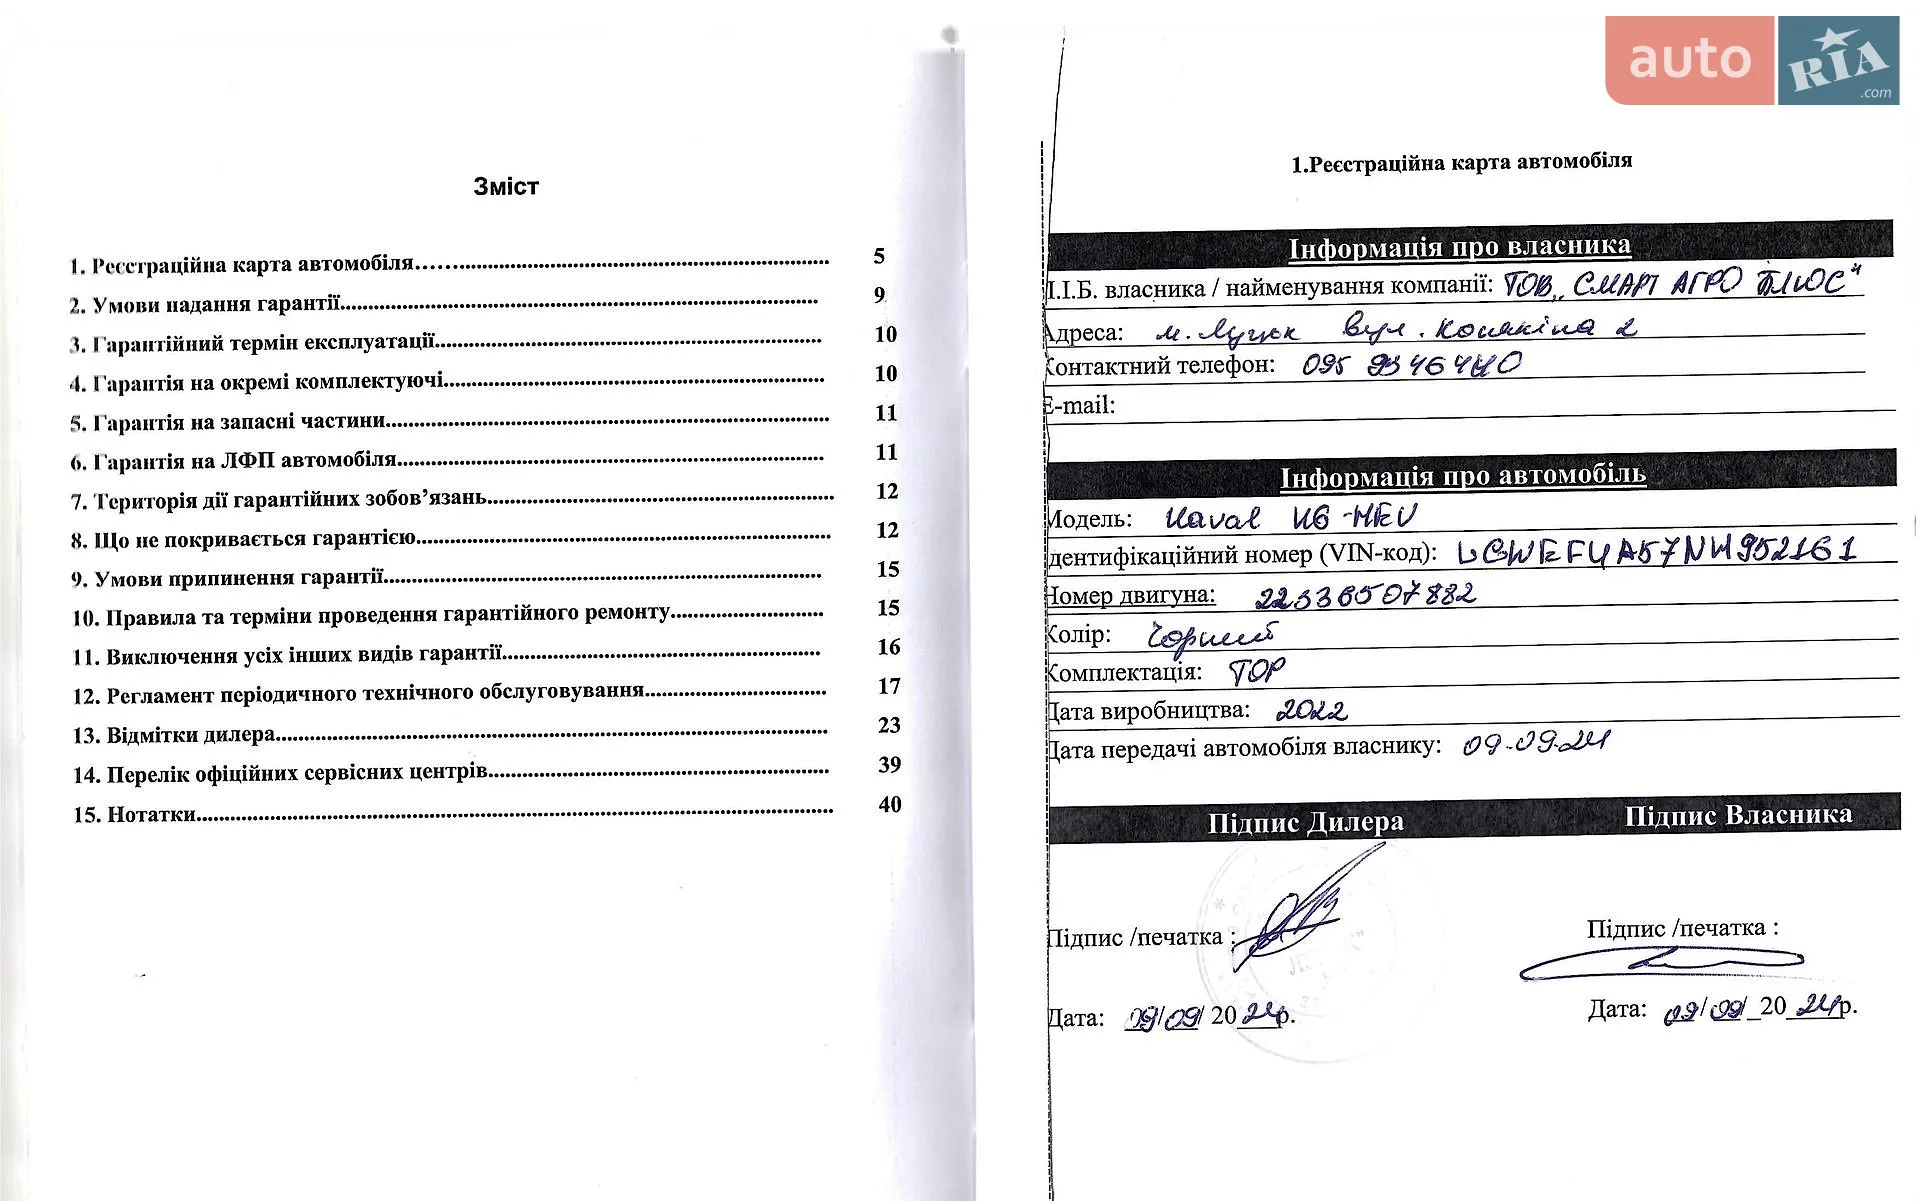 auto
RIA
.com
Зміст
1. Реєстраційна карта автомобіля 5
2. Умови надання гарантії 9
3. Гарантійний термін експлуатації 10
4. Гарантія на окремі комплектуючі 10
5. Гарантія на запасні частини 11
6. Гарантія на ЛФП автомобіля 11
7. Територія дії гарантійних зобов’язань 12
8. Що не покривається гарантією 12
9. Умови припинення гарантії 15
10. Правила та терміни проведення гарантійного ремонту 15
11. Виключення усіх інших видів гарантії 16
12. Регламент періодичного технічного обслуговування 17
13. Відмітки дилера 23
14. Перелік офіційних сервісних центрів 39
15. Нотатки 40
1.Реєстраційна карта автомобіля
Інформація про власника
П.І.Б. власника / найменування компанії: ТОВ „СМАРТ АГРО ПЛЮС"
Адреса: м. Луцьк вул. Конякіна 2
Контактний телефон: 095
E-mail:
Інформація про автомобіль
Модель: Haval H6 -HEV
Ідентифікаційний номер (VIN-код): LGWEFUA57NH952161
Номер двигуна: 22336507882
Колір: Чорний
Комплектація: TOP
Дата виробництва: 2022
Дата передачі автомобіля власнику: 09.09.24
Підпис Дилера Підпис Власника
Підпис /печатка : Підпис /печатка :
Дата: 09/09/ 2024р. Дата: 09/09/_2024р.